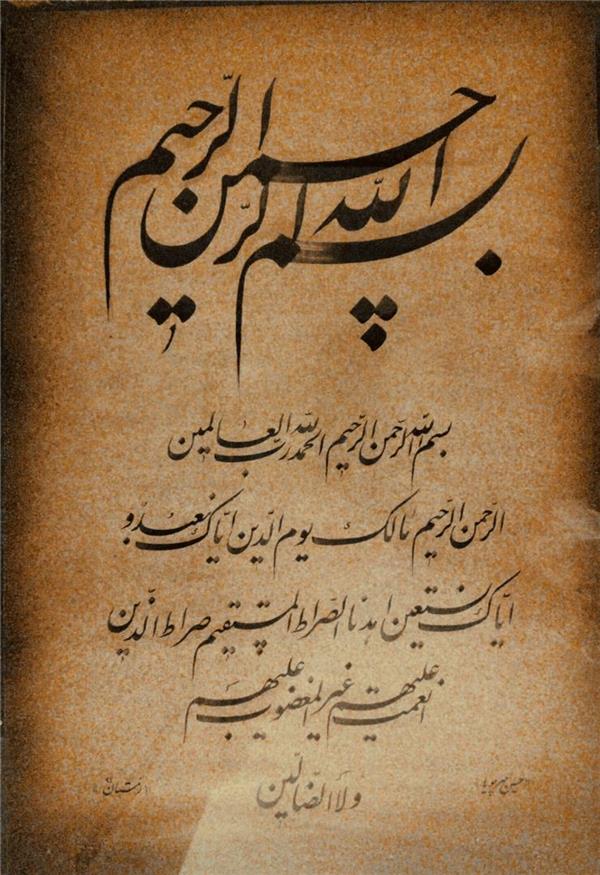 بسم الله الرحمن الرحیم
بسم الله الرحمن الرحیم الحمد لله رب العالمین
الرحمن الرحیم مالک یوم الدین ایاک نعبد و
ایاک نستعین اهدنا الصراط المستقیم صراط الذین
انعمت علیهم غیر المغضوب علیهم
ولا الضالین
زمستان